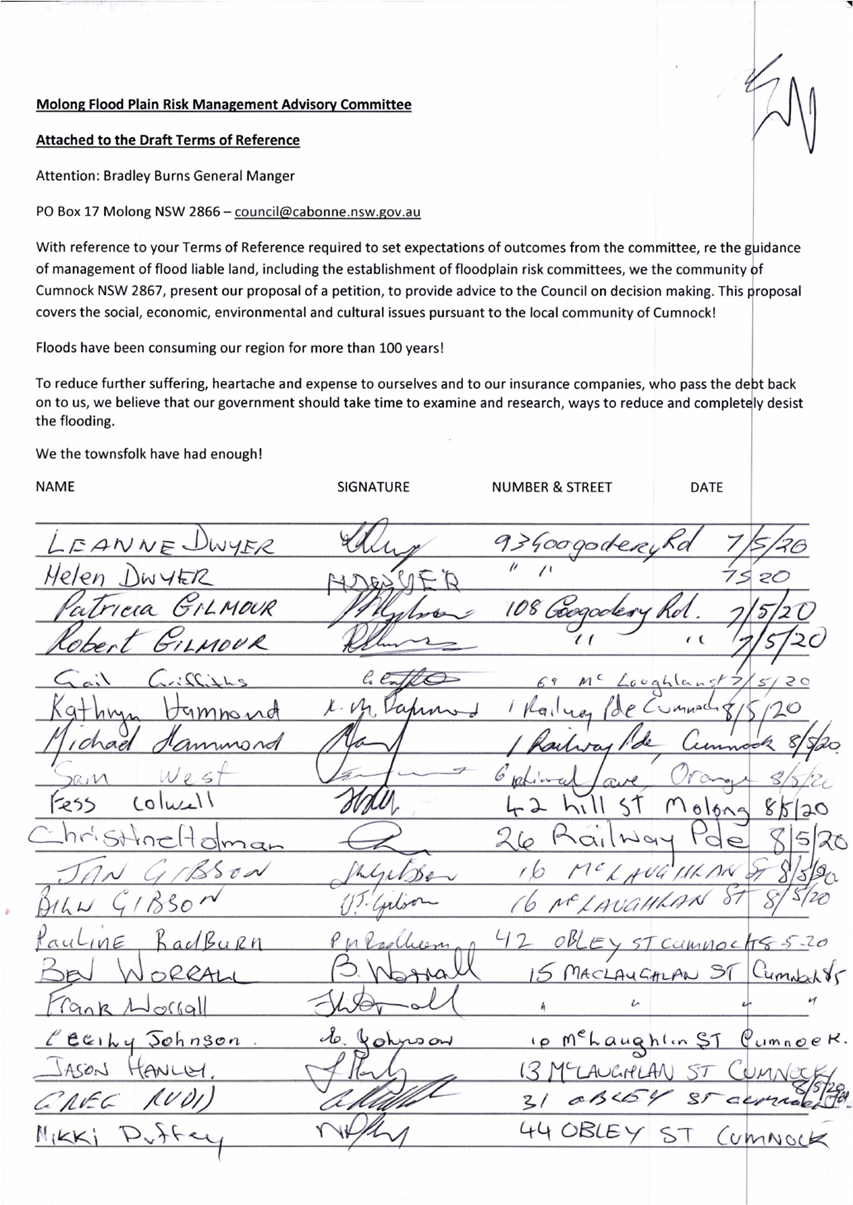 Molong Flood Plain Risk Management Advisory Committee
Attached to the Draft Terms of Reference
Attention: Bradley Burns General Manger
PO Box 17 Molong NSW 2866 – council@cabonne.nsw.gov.au
With reference to your Terms of Reference required to set expectations of outcomes from the committee, re the guidance
of management of flood liable land, including the establishment of floodplain risk committees, we the community of
Cumnock NSW 2867, present our proposal of a petition, to provide advice to the Council on decision making. This proposal
covers the social, economic, environmental and cultural issues pursuant to the local community of Cumnock!
Floods have been consuming our region for more than 100 years!
To reduce further suffering, heartache and expense to ourselves and to our insurance companies, who pass the debt back
on to us, we believe that our government should take time to examine and research, ways to reduce and completely desist
the flooding.
We the townsfolk have had enough!
NAME SIGNATURE NUMBER & STREET DATE
LEANNE DWYER Rd 7/5/20
Helen DWYER HDWYER " " 7 5 20
Patricia GILMOUR 108 Googodery Rd. 7/5/20
Robert GILMOUR " " 7/5/20
Gail Griffiths 69 Mc Loughlan st 7/5/20
Kathryn Hammond 1 Railway Pde Cumnock 8/5/20
Michael Hammond 1 Railway Pde, Cumnock 8/5/20
Sam West 6 ave, Orange 8/5/20
Fess Colwell 42 hill ST Molong 8/5/20
Christine Holman 26 Railway Pde 8/5/20
JAN GIBSON 16 McLAUGHLAN ST 8/5/20
BILL GIBSON 16 McLAUGHLAN ST 8/5/20
Pauline RadBurn 42 OBLEY ST CUMNOCK 8-5-20
BEN WORRALL B. Worrall 15 MACLAUGHLAN ST Cumnock
Frank Worrall " " " "
Johnson Johnson 10 McLaughlin ST Cumnock.
JASON HANLEY. 13 McLAUGHLAN ST CUMNOCK
8/5/20
GREG 31 OBLEY ST cumnock
Mikki Duffey 44 OBLEY ST CUMNOCK